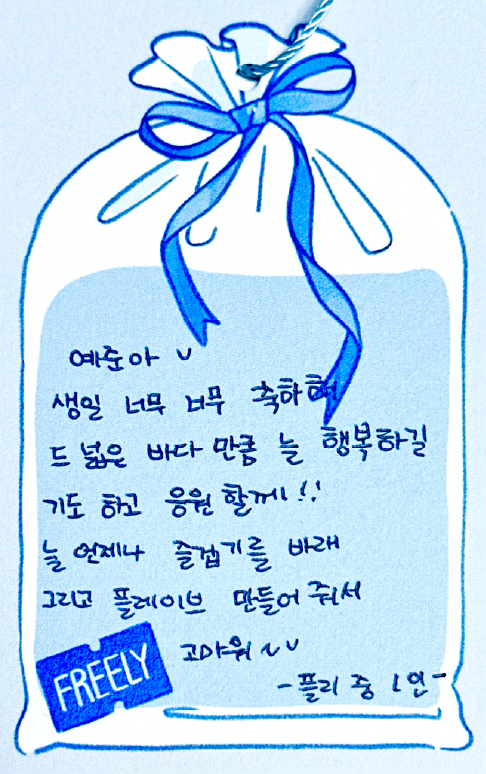 예준아 ᴗ
생일 너무 너무 축하해
드 넓은 바다 만큼 늘 행복하길
기도 하고 응원 할께!!
늘 언제나 즐겁기를 바래
그리고 플레이브 만들어 줘서
고마워 ~ᴗ
FREELY
-플리 중 1인-